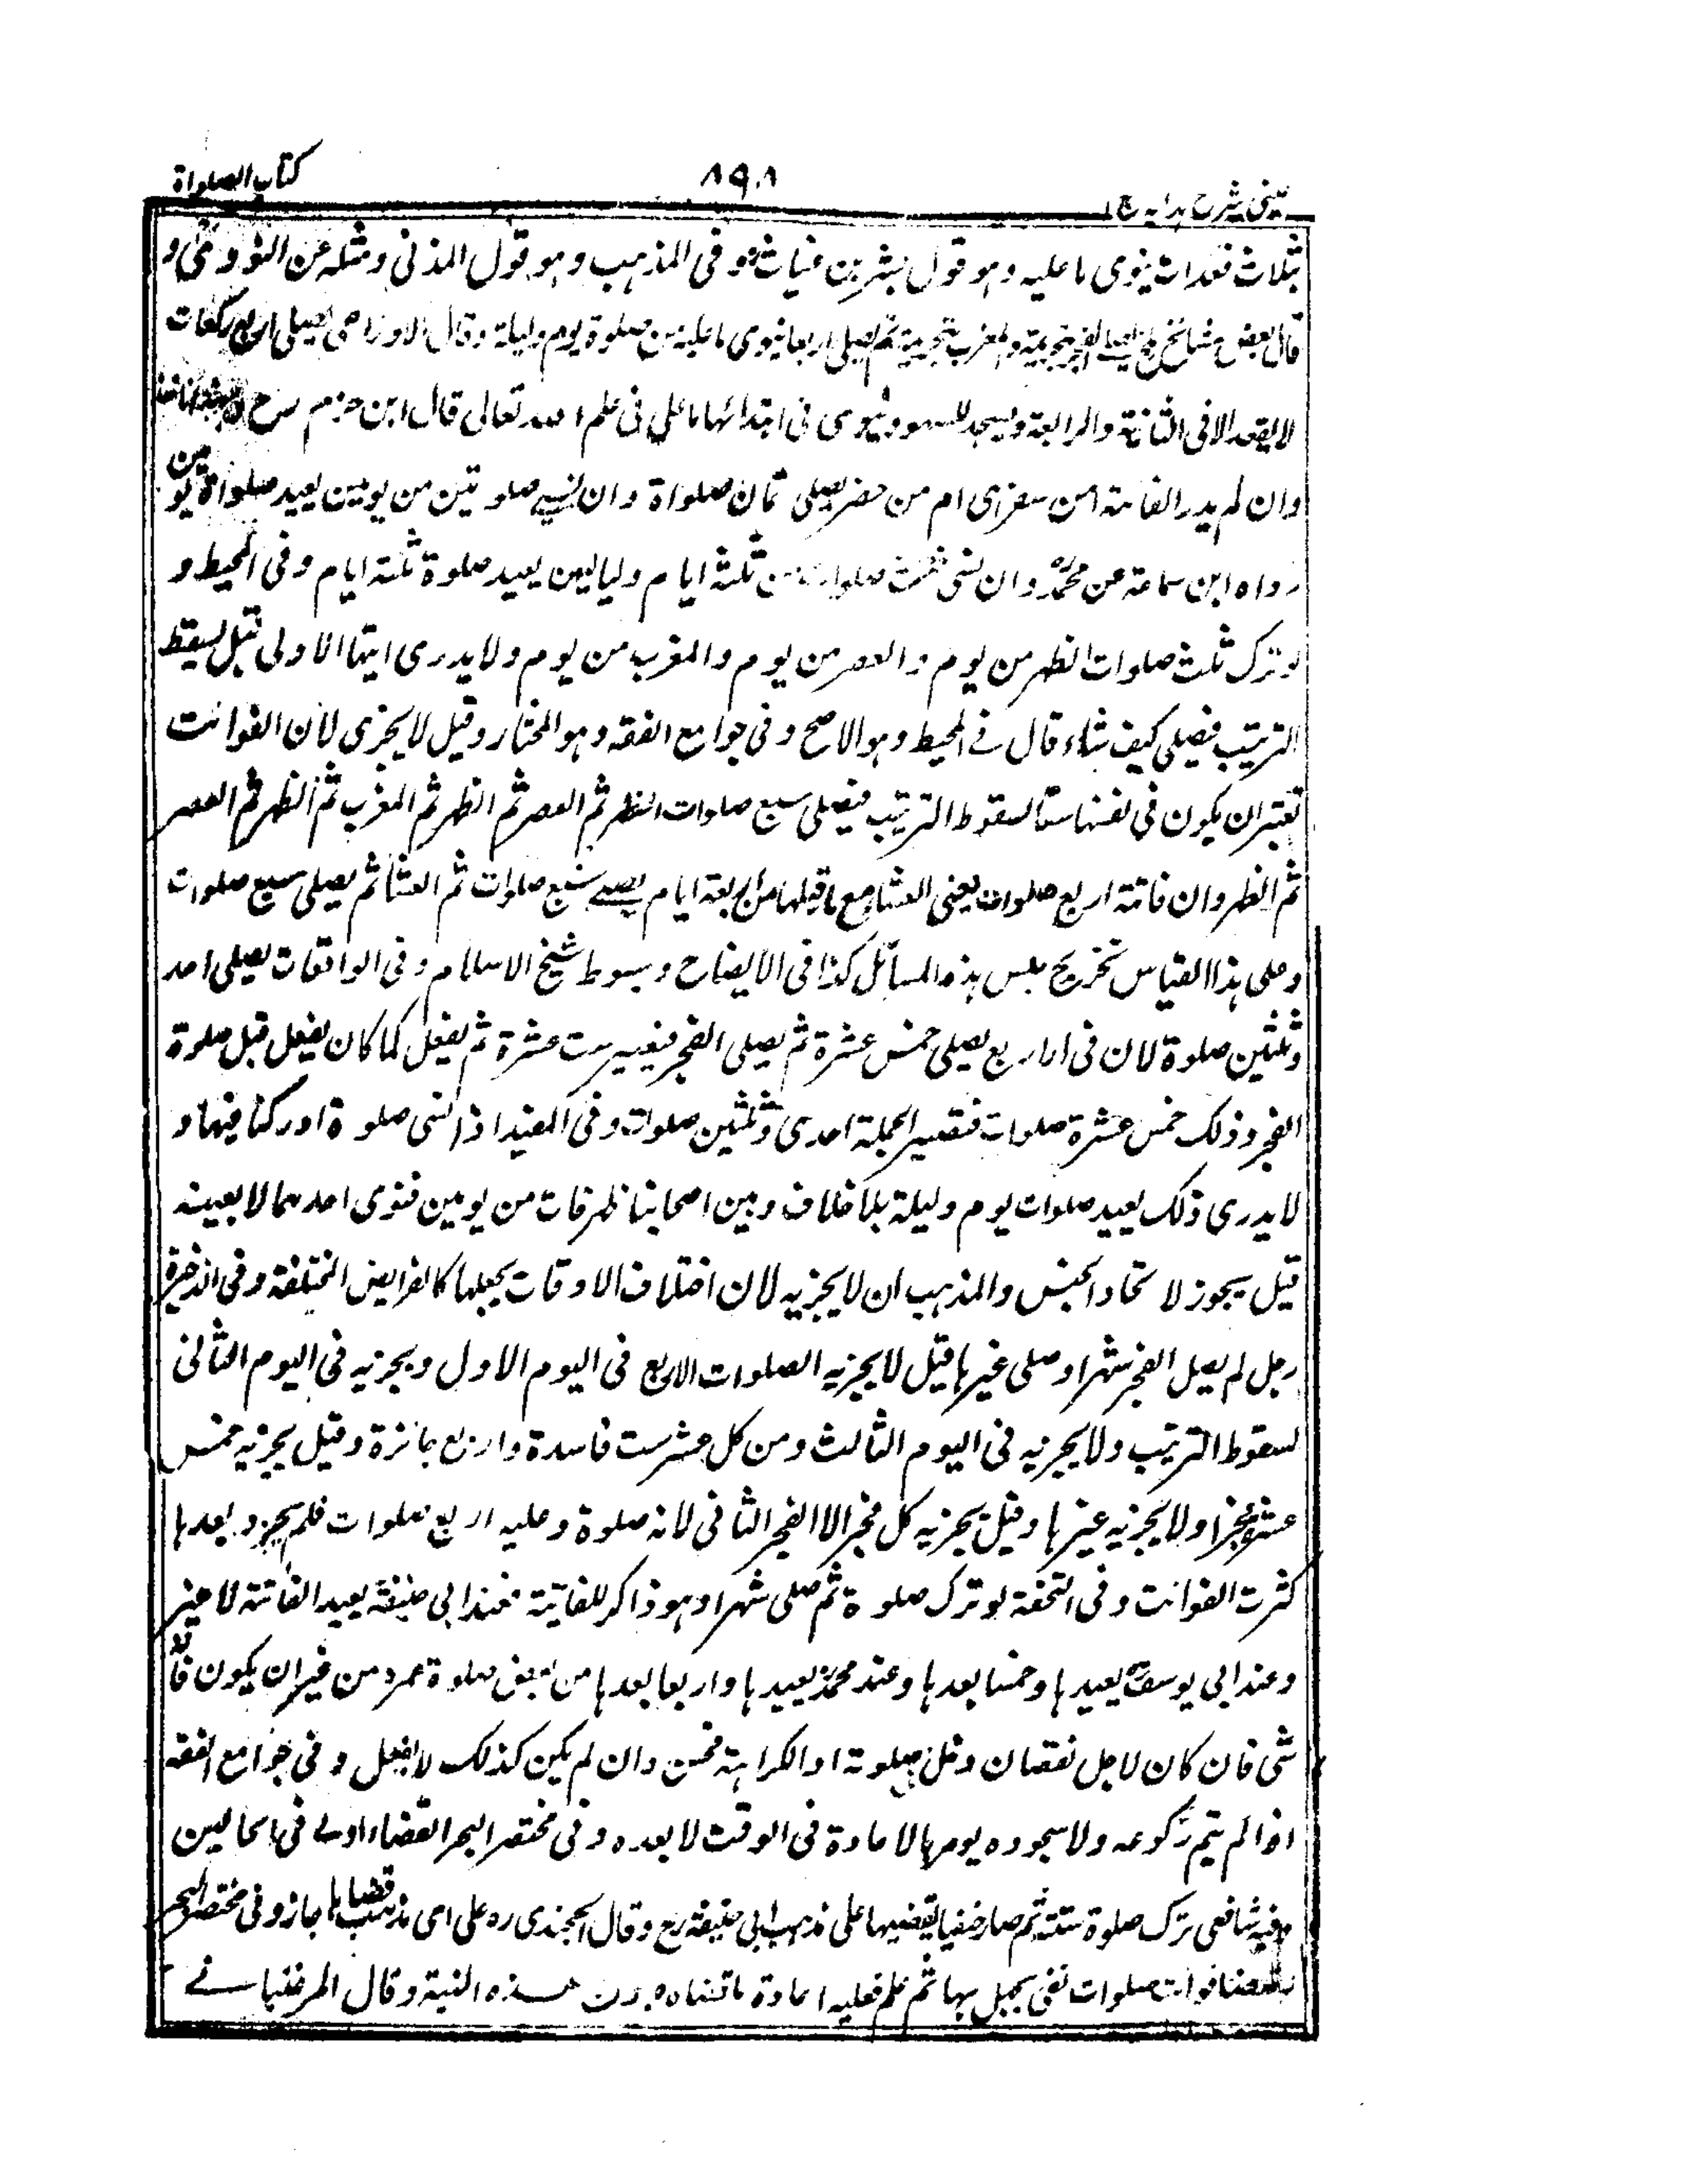 عینی شرح ہدایہ ج ۱
۸۹۸
کتاب الصلواة
بثلاث قعدات ینوی ما علیه وہو قول بشر بن غیاث وفی المذہب وہو قول المذنی ومثله عن الثوری و
قال بعض مشائخ بلخ یصلی الفجر بتحریمة والمغرب بتحریمة ثم یصلی اربعا ینوی ما علیه من صلوة یوم ولیلة وقال الاوزاعی یصلی اربع رکعات
لا یقعد الا فی الثانیة والرابعة ویسجد للسہو وینوی فی ابتدائہا ما علی فی علم الله تعالی قال ابن حزم
وان لم یدر الفائتة امن سفر ای ام من حضر یصلی ثمان صلواة وان نسی صلوتین من یومین یعید صلواة یومین
رواہ ابن سماعة عن محمد وان نسی ثلث صلوات من ثلثة ایام ولیالیہن یعید صلوة ثلثة ایام وفی المحیط و
لو ترک ثلث صلوات الظہر من یوم والعصر من یوم والمغرب من یوم ولا یدری ایتہا الاولی قیل یسقط
الترتیب فیصلی کیف شاء قال فی المحیط وہو الاصح وفی جوامع الفقه وہو المختار وقیل لا یجزی لان الفوائت
تعتبر ان یکون فی نفسہا ستا لسقوط الترتیب فیصلی سبع صلوات الظہر ثم العصر ثم الظہر ثم المغرب ثم الظہر ثم العصر
ثم الظہر وان فاتتة اربع صلوات یعنی العشاء مع ما قبلہا من اربعة ایام یصلی سبع صلوات ثم العشا ثم یصلی سبع صلوات
وعلی ہذا القیاس تخریج جلس ہذہ المسائل کذا فی الایضاح ومبسوط شیخ الاسلام وفی الواقعات یصلی احد
وثلثین صلوة لان فی الاربع یصلی خمس عشرة ثم یصلی الفجر فیصیر ست عشرة ثم یفعل کما کان یفعل قبل صلوة
الفجر وذلک خمس عشرة صلوات فتصیر الجملة احدی وثلثین صلوات وفی المفید اذا نسی صلوة او رکنا فیہا و
لا یدری ذلک یعید صلوات یوم ولیلة بلا خلاف وبین اصحابنا ظہر فات من یومین فنوی احدہما لا بعینه
قیل یجوز لاتحاد الجنس والمذہب ان لا یجزیه لان اختلاف الاوقات یجعلہا کالفرایض المختلفة وفی الذخیرة
رجل لم یصل الفجر شہرا وصلی غیرہا قیل لا یجزیه الصلوات الاربع فی الیوم الاول ویجزیه فی الیوم الثانی
لسقوط الترتیب ولا یجزیه فی الیوم الثالث ومن کل عشر ست فاسدة واربع جائزة وقیل یجزیه خمس
عشرة فجرا ولا یجزیه غیرہا وقیل یجزیه کل فجر الا الفجر الثانی لانه صلوة وعلیه اربع صلوات فلم یجز وبعدہا
کثرت الفوائت وفی التحفة لو ترک صلوة ثم صلی شہرا وہو ذاکر للفائتة فعند ابی حنیفة یعید الفائتة لا غیر
وعند ابی یوسف یعیدہا وخمسا بعدہا وعند محمد یعیدہا واربعا بعدہا من بعض صلوة عمرہ من غیر ان یکون فاته
شی فان کان لاجل نقصان دخل صلوتة او الکراہیة فحسن وان لم یکن کذلک لا یفعل وفی جوامع الفقه
اذا لم یتم رکوعه ولا سجودہ یومر بالاعادة فی الوقت لا بعدہ وفی مختصر البحر القضاء اولی فی الحالین
وفیه شافعی ترک صلوة ستة ثم صار حنفیا یقضیہا علی مذہب ابی حنیفة رح وقال الحجندی رہ علی ای مذہب قضاہا جاز وفی مختصر البحر
فوائت صلوات نفی بجبل بہا ثم علم فعلیه اعادة ما قضاہ بدون ہذہ النیة وقال المرغینانی